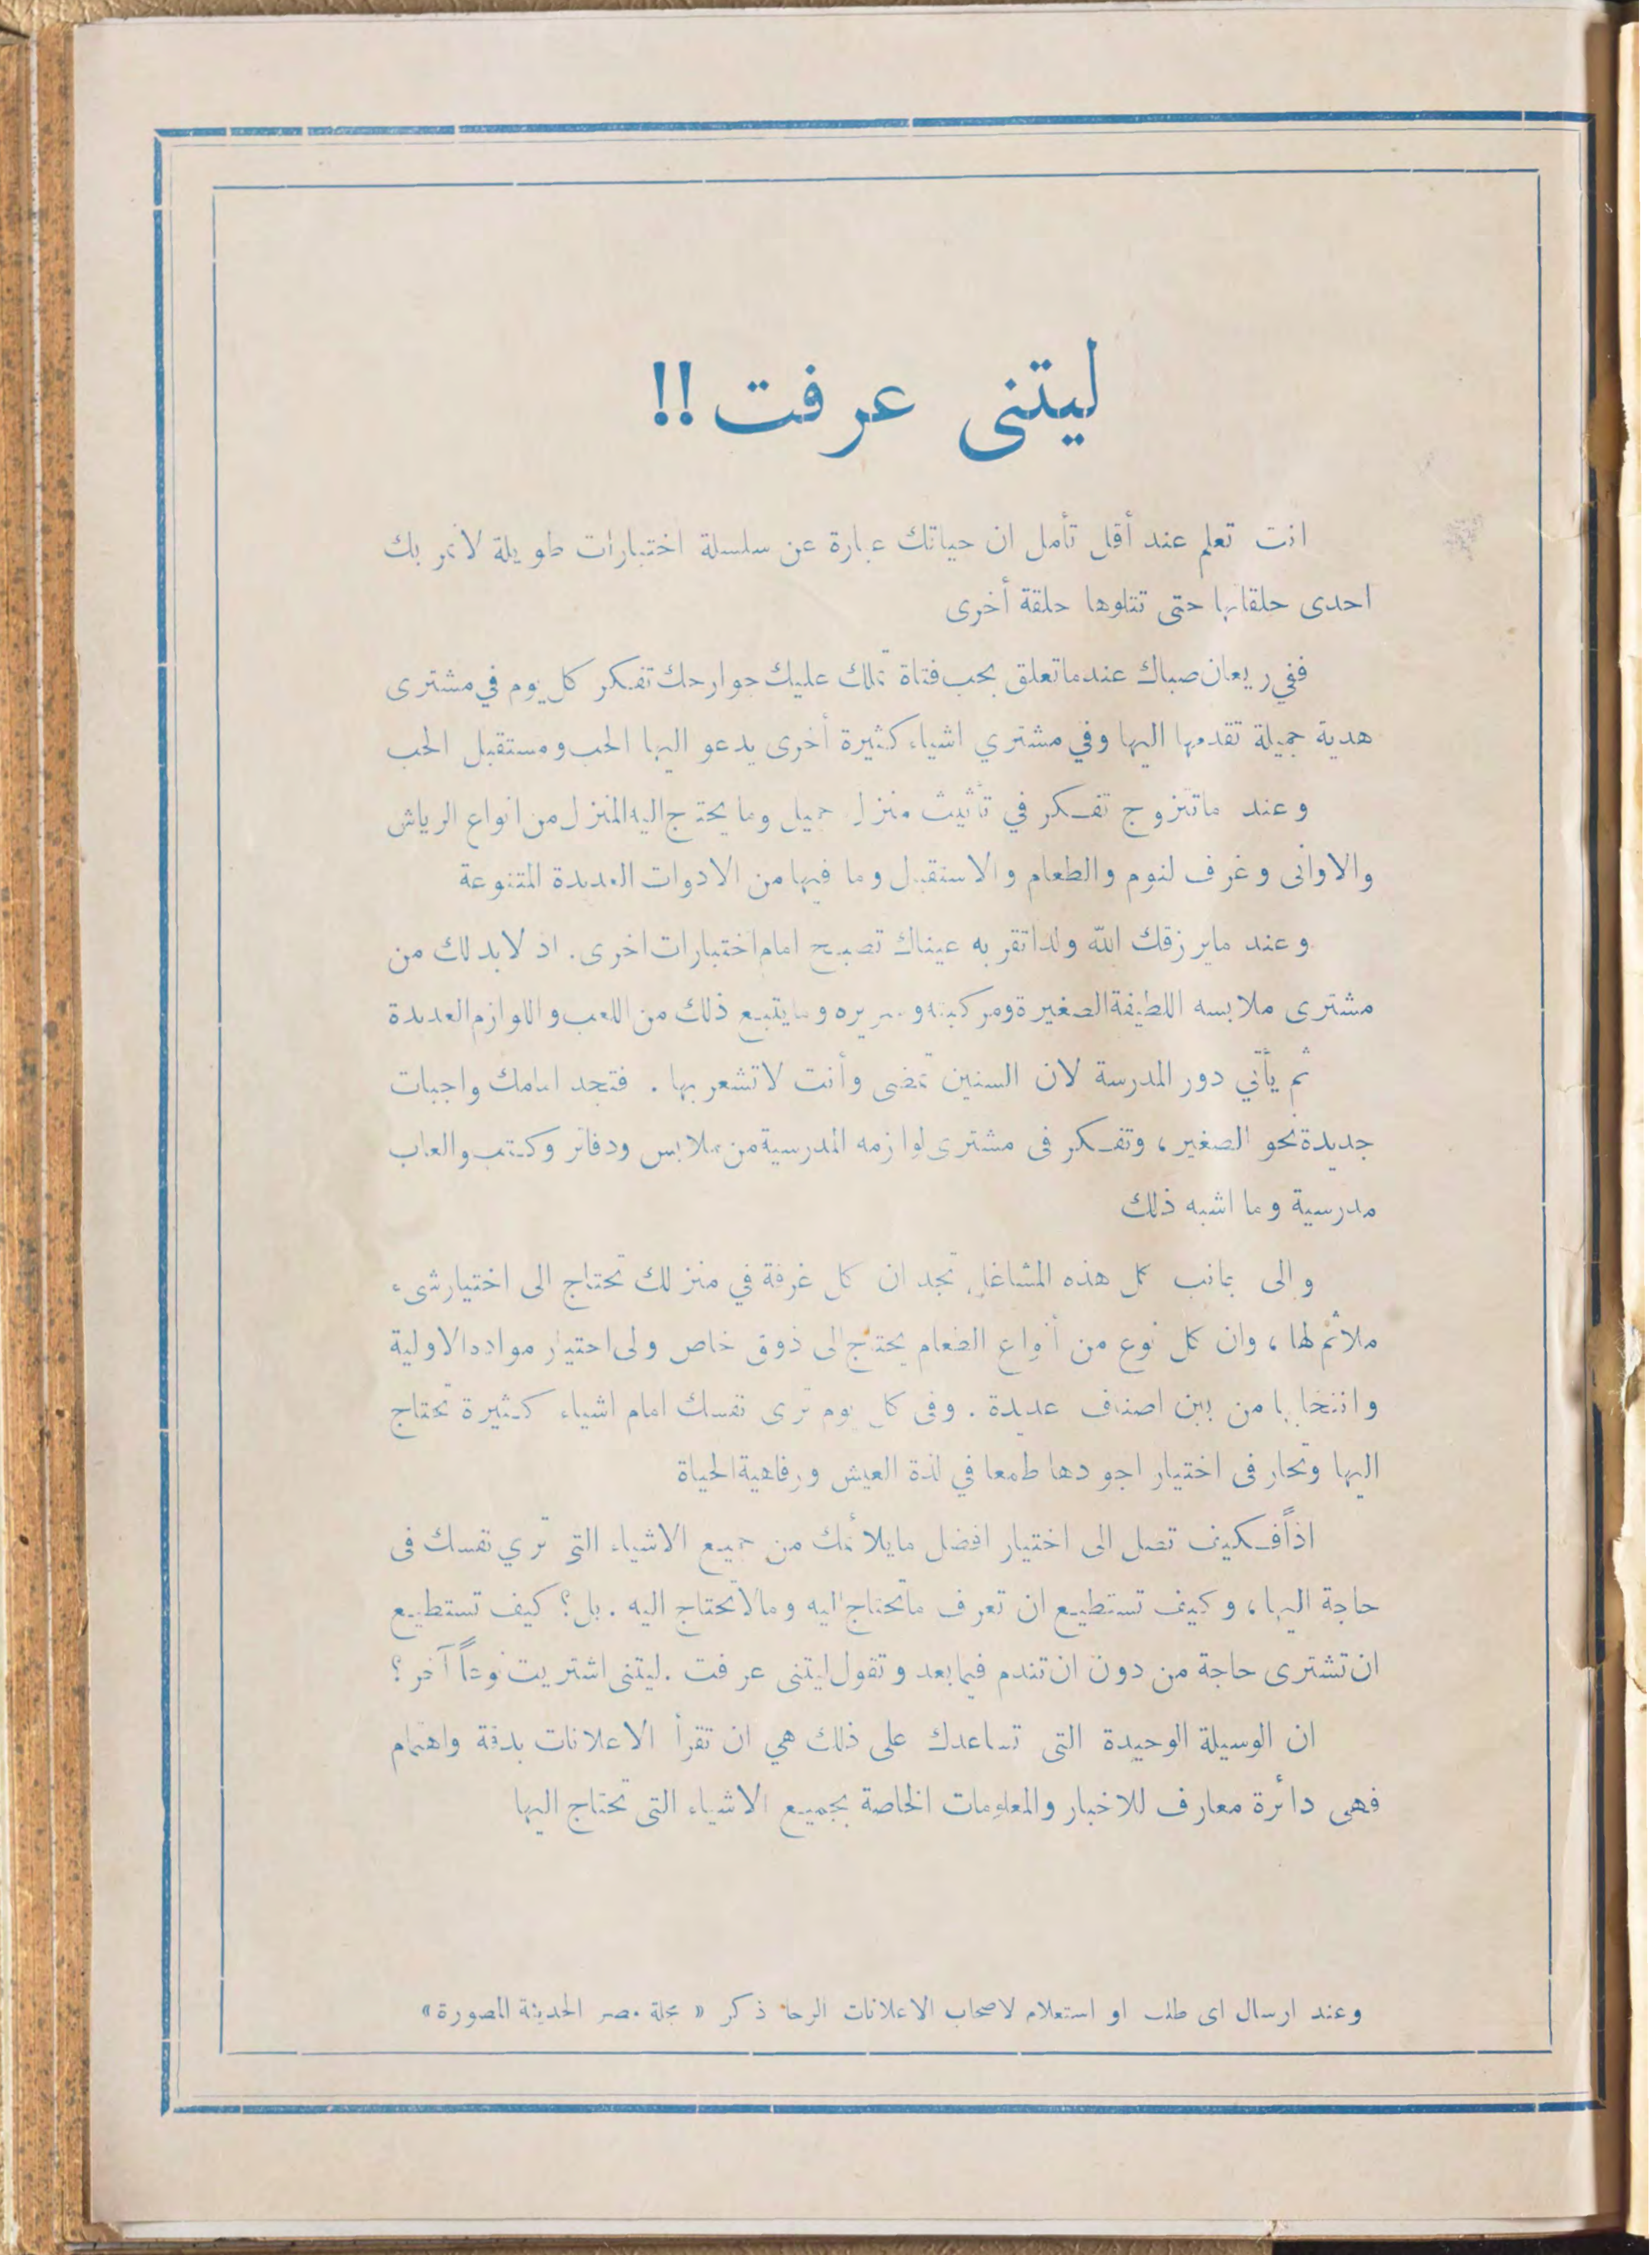 ليتنى عرفت !!
انت تعلم عند أقل تأمل ان حياتك عبارة عن سلسلة اختبارات طويلة لا تمر بك
احدى حلقاتها حتى تتلوها حلقة أخرى
ففي ريعان صباك عندما تعلق بحب فتاة تملك عليك جوارحك تفكر كل يوم في مشترى
هدية جميلة تقدمها اليها وفي مشتري اشياء كثيرة أخرى يدعو اليها الحب ومستقبل الحب
وعند ماتتزوج تفكر في تأثيث منزل جميل وما يحتاج اليه المنزل من انواع الرياش
والاوانى وغرف لنوم والطعام والاستقبال وما فيها من الادوات العديدة المتنوعة
وعند مايرزقك الله ولدا تقر به عيناك تصبح امام اختبارات اخرى. اذ لابد لك من
مشترى ملابسه اللطيفة الصغيرة ومركبته وسريره وما يتبع ذلك من اللعب واللوازم العديدة
ثم يأتي دور المدرسة لان السنين تمضى وأنت لا تشعر بها . فتجد امامك واجبات
جديدة نحو الصغير ، وتفكر فى مشترى لوازمه المدرسية من ملابس ودفاتر وكتب والعاب
مدرسية وما اشبه ذلك
والى جانب كل هذه المشاغل تجد ان كل غرفة في منزلك تحتاج الى اختيار شىء
ملائم لها ، وان كل نوع من أنواع الطعام يحتاج الى ذوق خاص والى اختيار مواده الاولية
وانتخابها من بين اصناف عديدة . وفى كل يوم ترى نفسك امام اشياء كثيرة تحتاج
اليها وتحار فى اختيار اجودها طمعا في لذة العيش ورفاهية الحياة
اذاً فكيف تصل الى اختيار افضل مايلائمك من جميع الاشياء التى تري نفسك فى
حاجة اليها ، وكيف تستطيع ان تعرف ماتحتاج اليه ومالا تحتاج اليه . بل؟ كيف تستطيع
ان تشترى حاجة من دون ان تندم فيما بعد وتقول ليتنى عرفت . ليتنى اشتريت نوعاً آخر ؟
ان الوسيلة الوحيدة التى تساعدك على ذلك هي ان تقرأ الاعلانات بدقة واهتمام
فهى دائرة معارف للاخبار والمعلومات الخاصة بجميع الاشياء التى تحتاج اليها
وعند ارسال اى طلب او استعلام لاصحاب الاعلانات الرجا ذكر « مجلة مصر الحديثة المصورة»